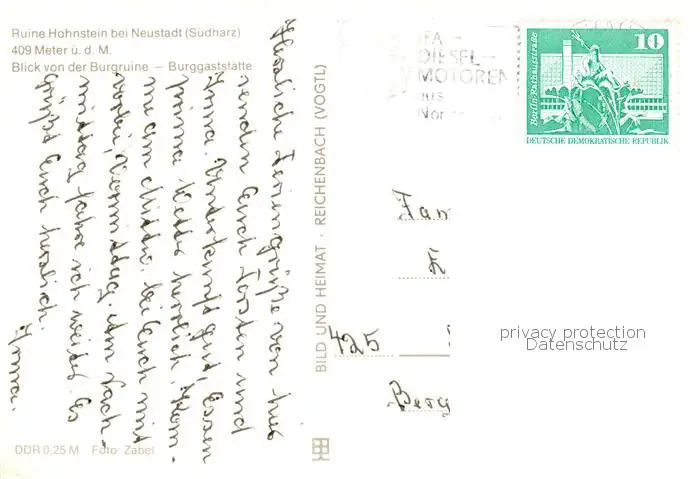 Ruine Hohnstein bei Neustadt (Südharz)
409 Meter ü. d. M.
Blick von der Burgruine – Burggaststätte
Herzliche Feriengrüße von hier
senden Euch Torsten und
Anna. Unterkunft gut, Essen
prima Wetter herrlich. Kom-
me am Mittw. bei Euch mit
vorbei, Vormittag. Am Nach-
mittag fahre ich weiter. Es
grüßt Euch herzlich.
Anna.
DDR 0,25 M Foto: Zabel
BILD UND HEIMAT · REICHENBACH (VOGTL)
IFA-
DIESEL-
MOTOREN
aus
Nor
10
Berlin-Rathausstraße
DEUTSCHE DEMOKRATISCHE REPUBLIK
Fam
425
Berg
privacy protection
Datenschutz